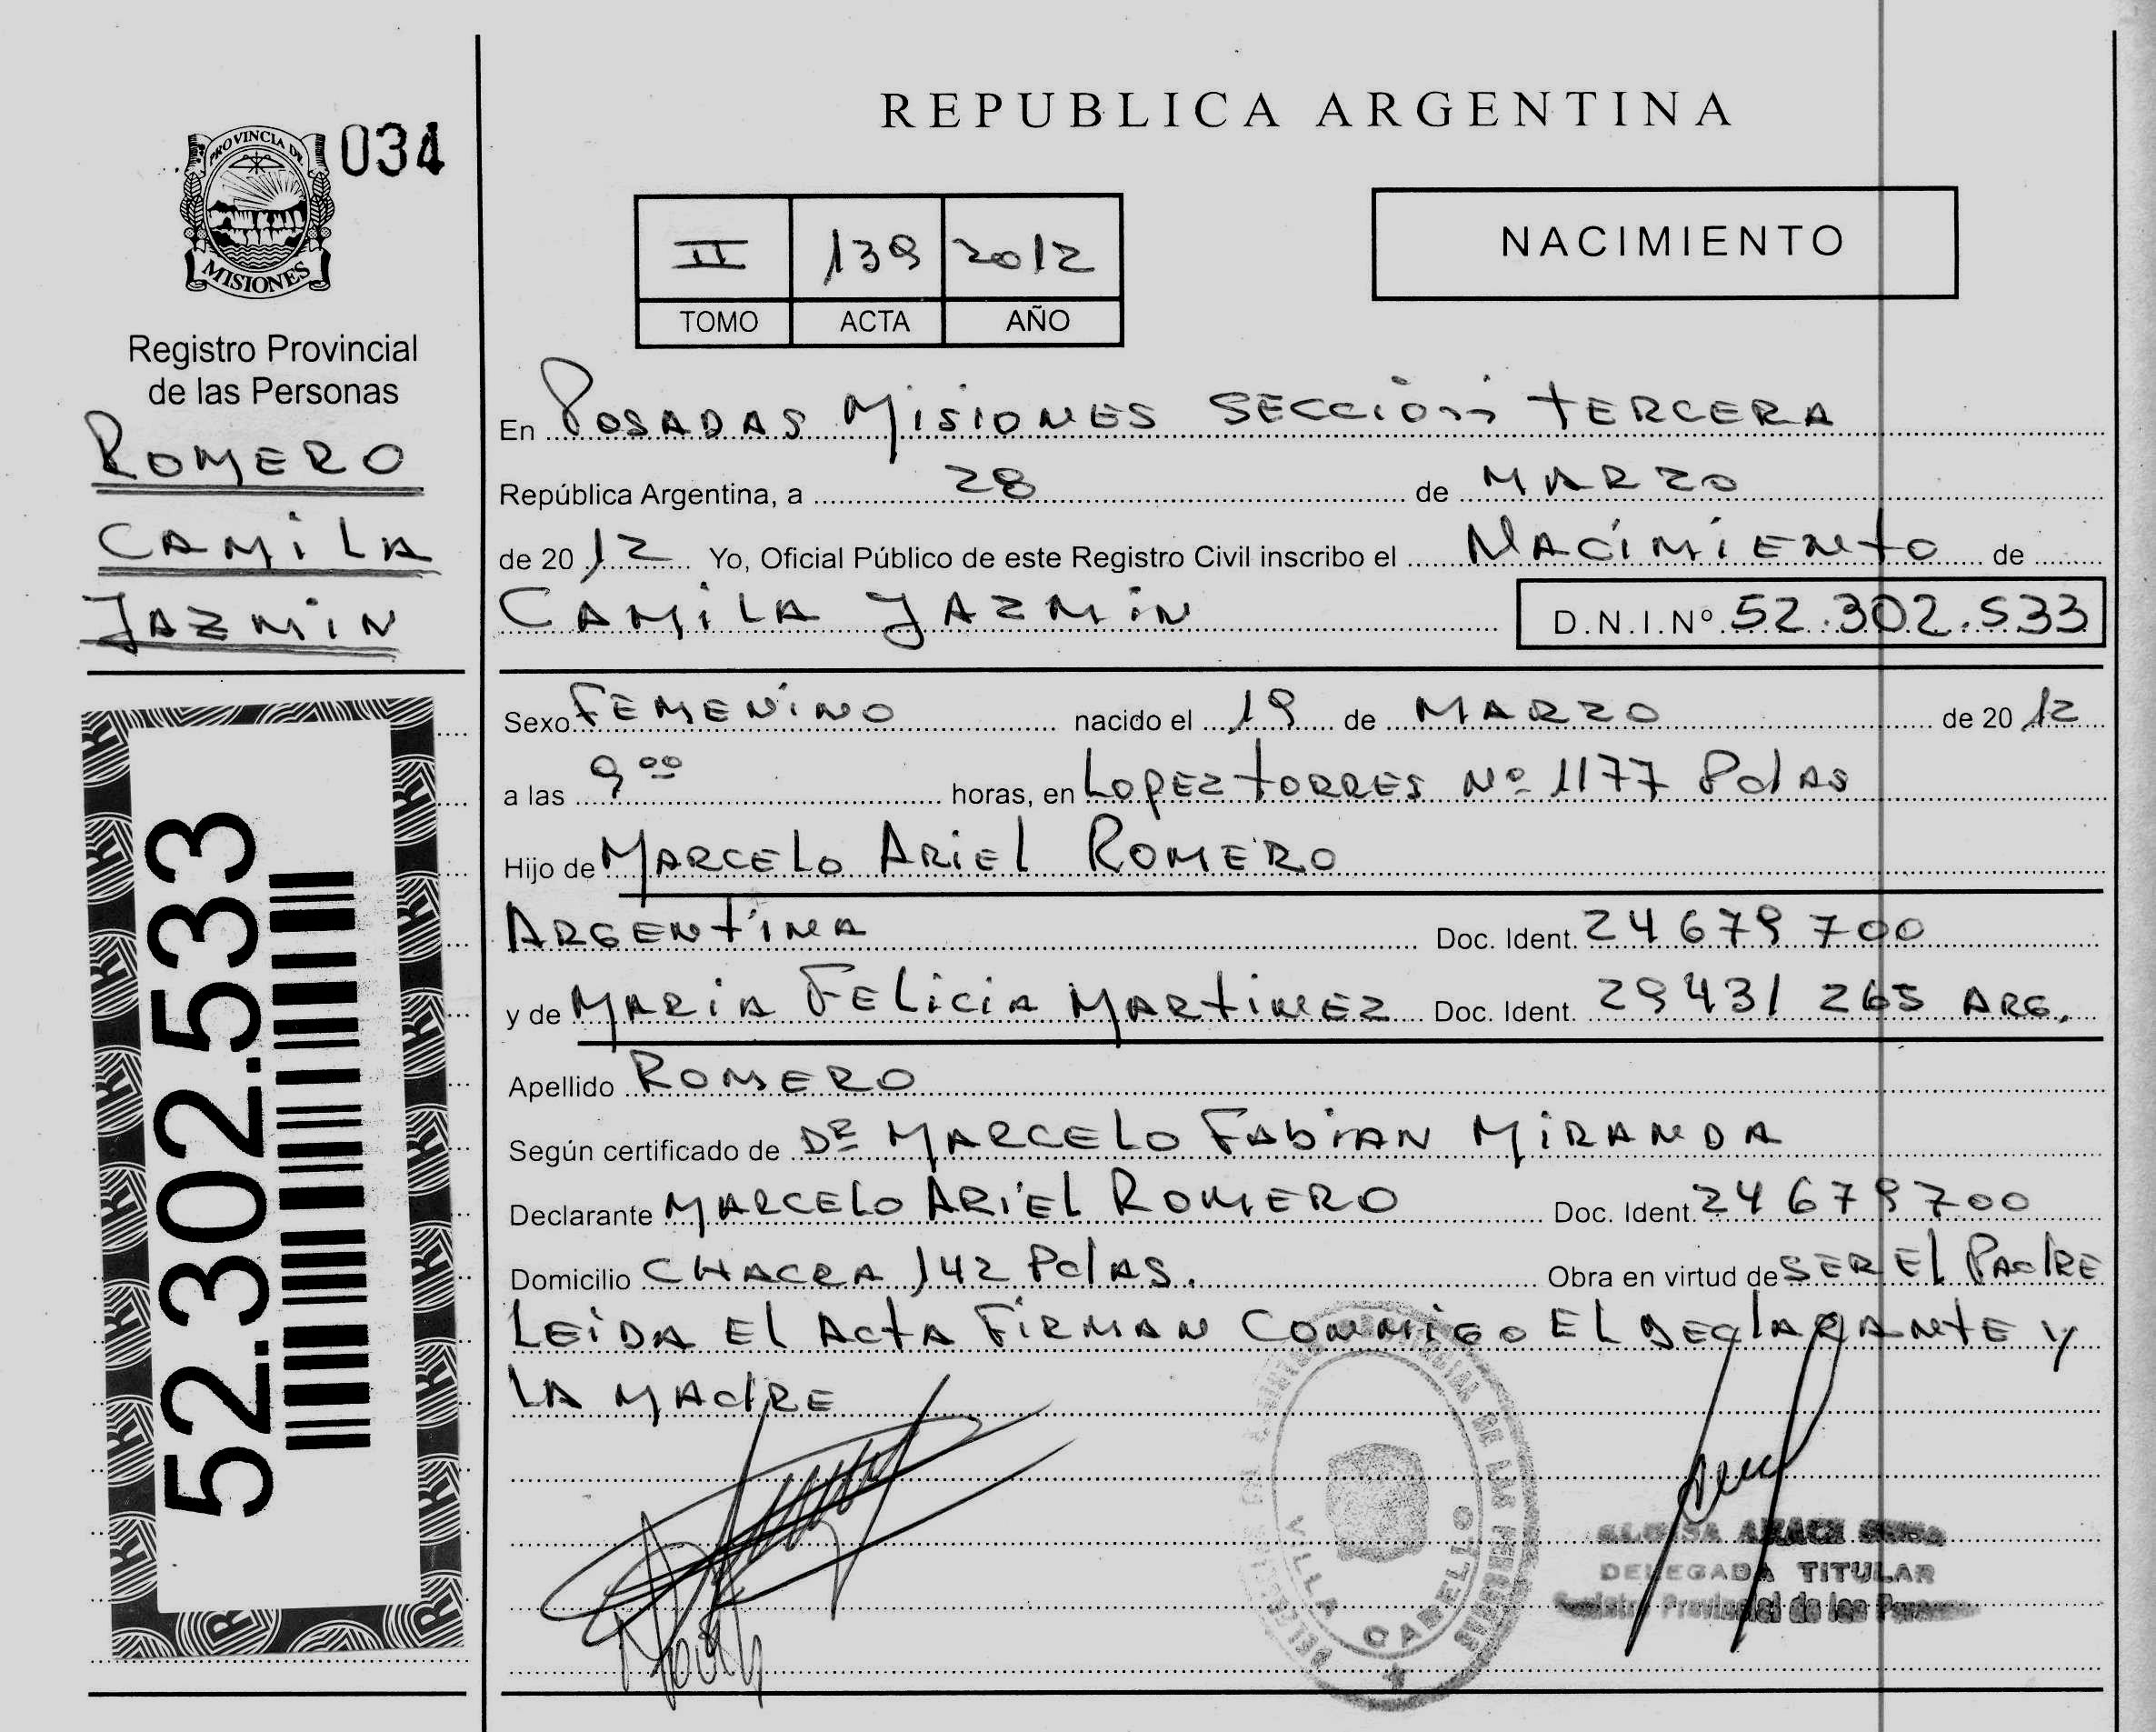 PROVINCIA DE
MISIONES
034
Registro Provincial
de las Personas
ROMERO
CAMILA
JAZMIN
52.302.533
REPUBLICA ARGENTINA
II 139 2012
TOMO ACTA AÑO
NACIMIENTO
En POSADAS MISIONES SECCIÓN TERCERA
República Argentina, a 28 de MARZO
de 2012 Yo, Oficial Público de este Registro Civil inscribo el NACIMIENTO de
CAMILA JAZMIN D.N.I.Nº 52.302.533
Sexo FEMENINO nacido el 19 de MARZO de 2012
a las 9 00 horas, en LOPEZ TORRES Nº 1177 Pdas
Hijo de MARCELO ARIEL ROMERO
ARGENTINA Doc. Ident. 24 679 700
y de MARIA FELICIA MARTINEZ Doc. Ident. 29431 265 ARG.
Apellido ROMERO
Según certificado de DR MARCELO FABIAN MIRANDA
Declarante MARCELO ARIEL ROMERO Doc. Ident. 24 679700
Domicilio CHACRA 142 Pdas. Obra en virtud de SER EL PADRE
LEIDA EL ACTA FIRMAN CONMIGO EL DECLARANTE Y
LA MADRE
DE LAS PERSONAS
VILLA CABELLO
DELEGADA TITULAR
Registro Provincial de las Personas